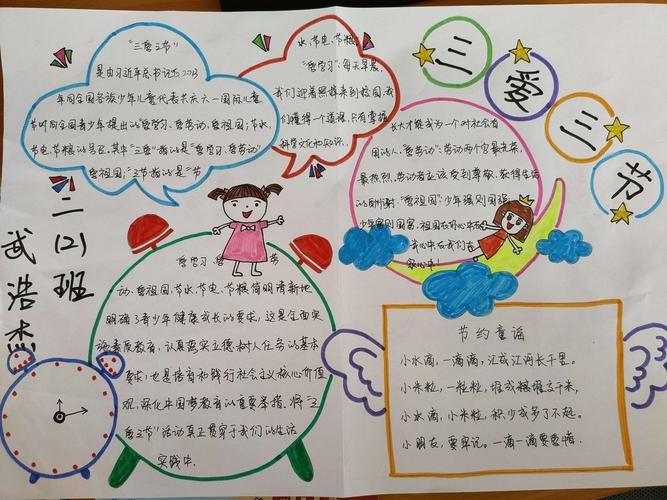 三爱三节
二(2)班
武浩杰
“三爱三节”
是由习近平总书记在2013
年向全国各族少年儿童代表共庆六一国际儿童
节时向全国青少年提出的“爱学习、爱劳动、爱祖国；节水、
节电、节粮的号召。其中“三爱”指的是“爱学习、爱劳动、
爱祖国；“三节”指的是“节
水、节电、节粮。
“爱学习”：每天早晨，
我们迎着照样来到校园，我
们懂得一个道理，只有掌握
科学文化和知识，
长大才能成为一个对社会有
用的人。“爱劳动”：劳动两个字最光荣，
最热烈。劳动者应该受到尊敬，获得生活
的酬谢。“爱祖国”：少年强则国强，
少年富则国富，祖国在我心中在
我心中在我们在
“爱学习、爱
节
动、爱祖国，节水、节电、节粮简明清新地
明确了青少年健康成长的要求，这是全面实
施素质教育，认真落实立德树人任务的基本
要求；也是培育和践行社会主义核心价值
观，深化中国梦教育的重要举措。将“三
爱三节”活动真正贯穿于我们的生活
实践中。
节约童谣
小水滴，一滴滴，汇成江河长千里。
小米粒，一粒粒，堆成粮堆高千米，
小水滴，小米粒，积少成多了不起。
小朋友，要牢记。一滴一滴要爱惜。